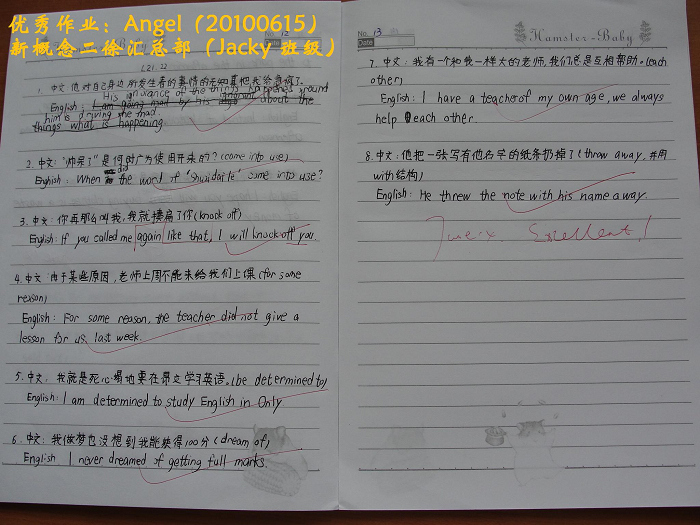 优秀作业：Angel（20100615）
新概念二徐汇总部（Jacky 班级）
No. 12
Date
L21, 22
1. 中文：他对自己身边所发生着的事情的无知真把我给逼疯了.
His ignorance of the things happens around
English: I am going mad by his ignorant about the
him is driving me mad.
things what is happening.
2. 中文："帅呆了"是何时广为使用开来的？(come into use)
English: When did the word of "Shuaidaile" came into use?
3. 中文：你再那么叫我，我就揍扁了你(knock off)
English: If you called me again like that, I will knock off you.
4. 中文：由于某些原因，老师上周不能来给我们上课(for some
reason)
English: For some reason, the teacher did not give a
lesson for us last week.
5. 中文：我就是死心塌地要在昂立学习英语。(be determined to)
English: I am determined to study English in Only.
6. 中文：我做梦也没想到我能获得100分(dream of)
English I never dreamed of getting full marks.
No. 13
Date
Hamster-Baby
7. 中文：我有一个和我一样大的老师，我们总是互相帮助。(each
other)
English: I have a teacher of my own age, we always
help each other.
8. 中文：他把一张写有他名字的纸条扔掉了(throw away, 并用
with结构)
English: He threw the note with his name away.
Excellent!